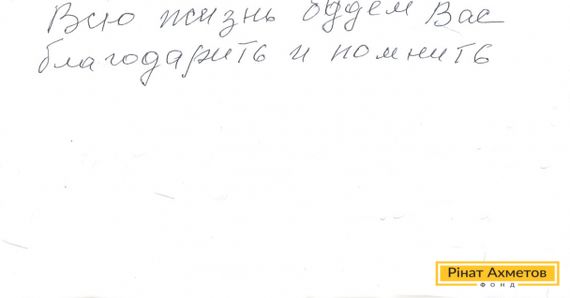 Всю жизнь будем Вас
благодарить и помнить
Рінат Ахметов
ФОНД